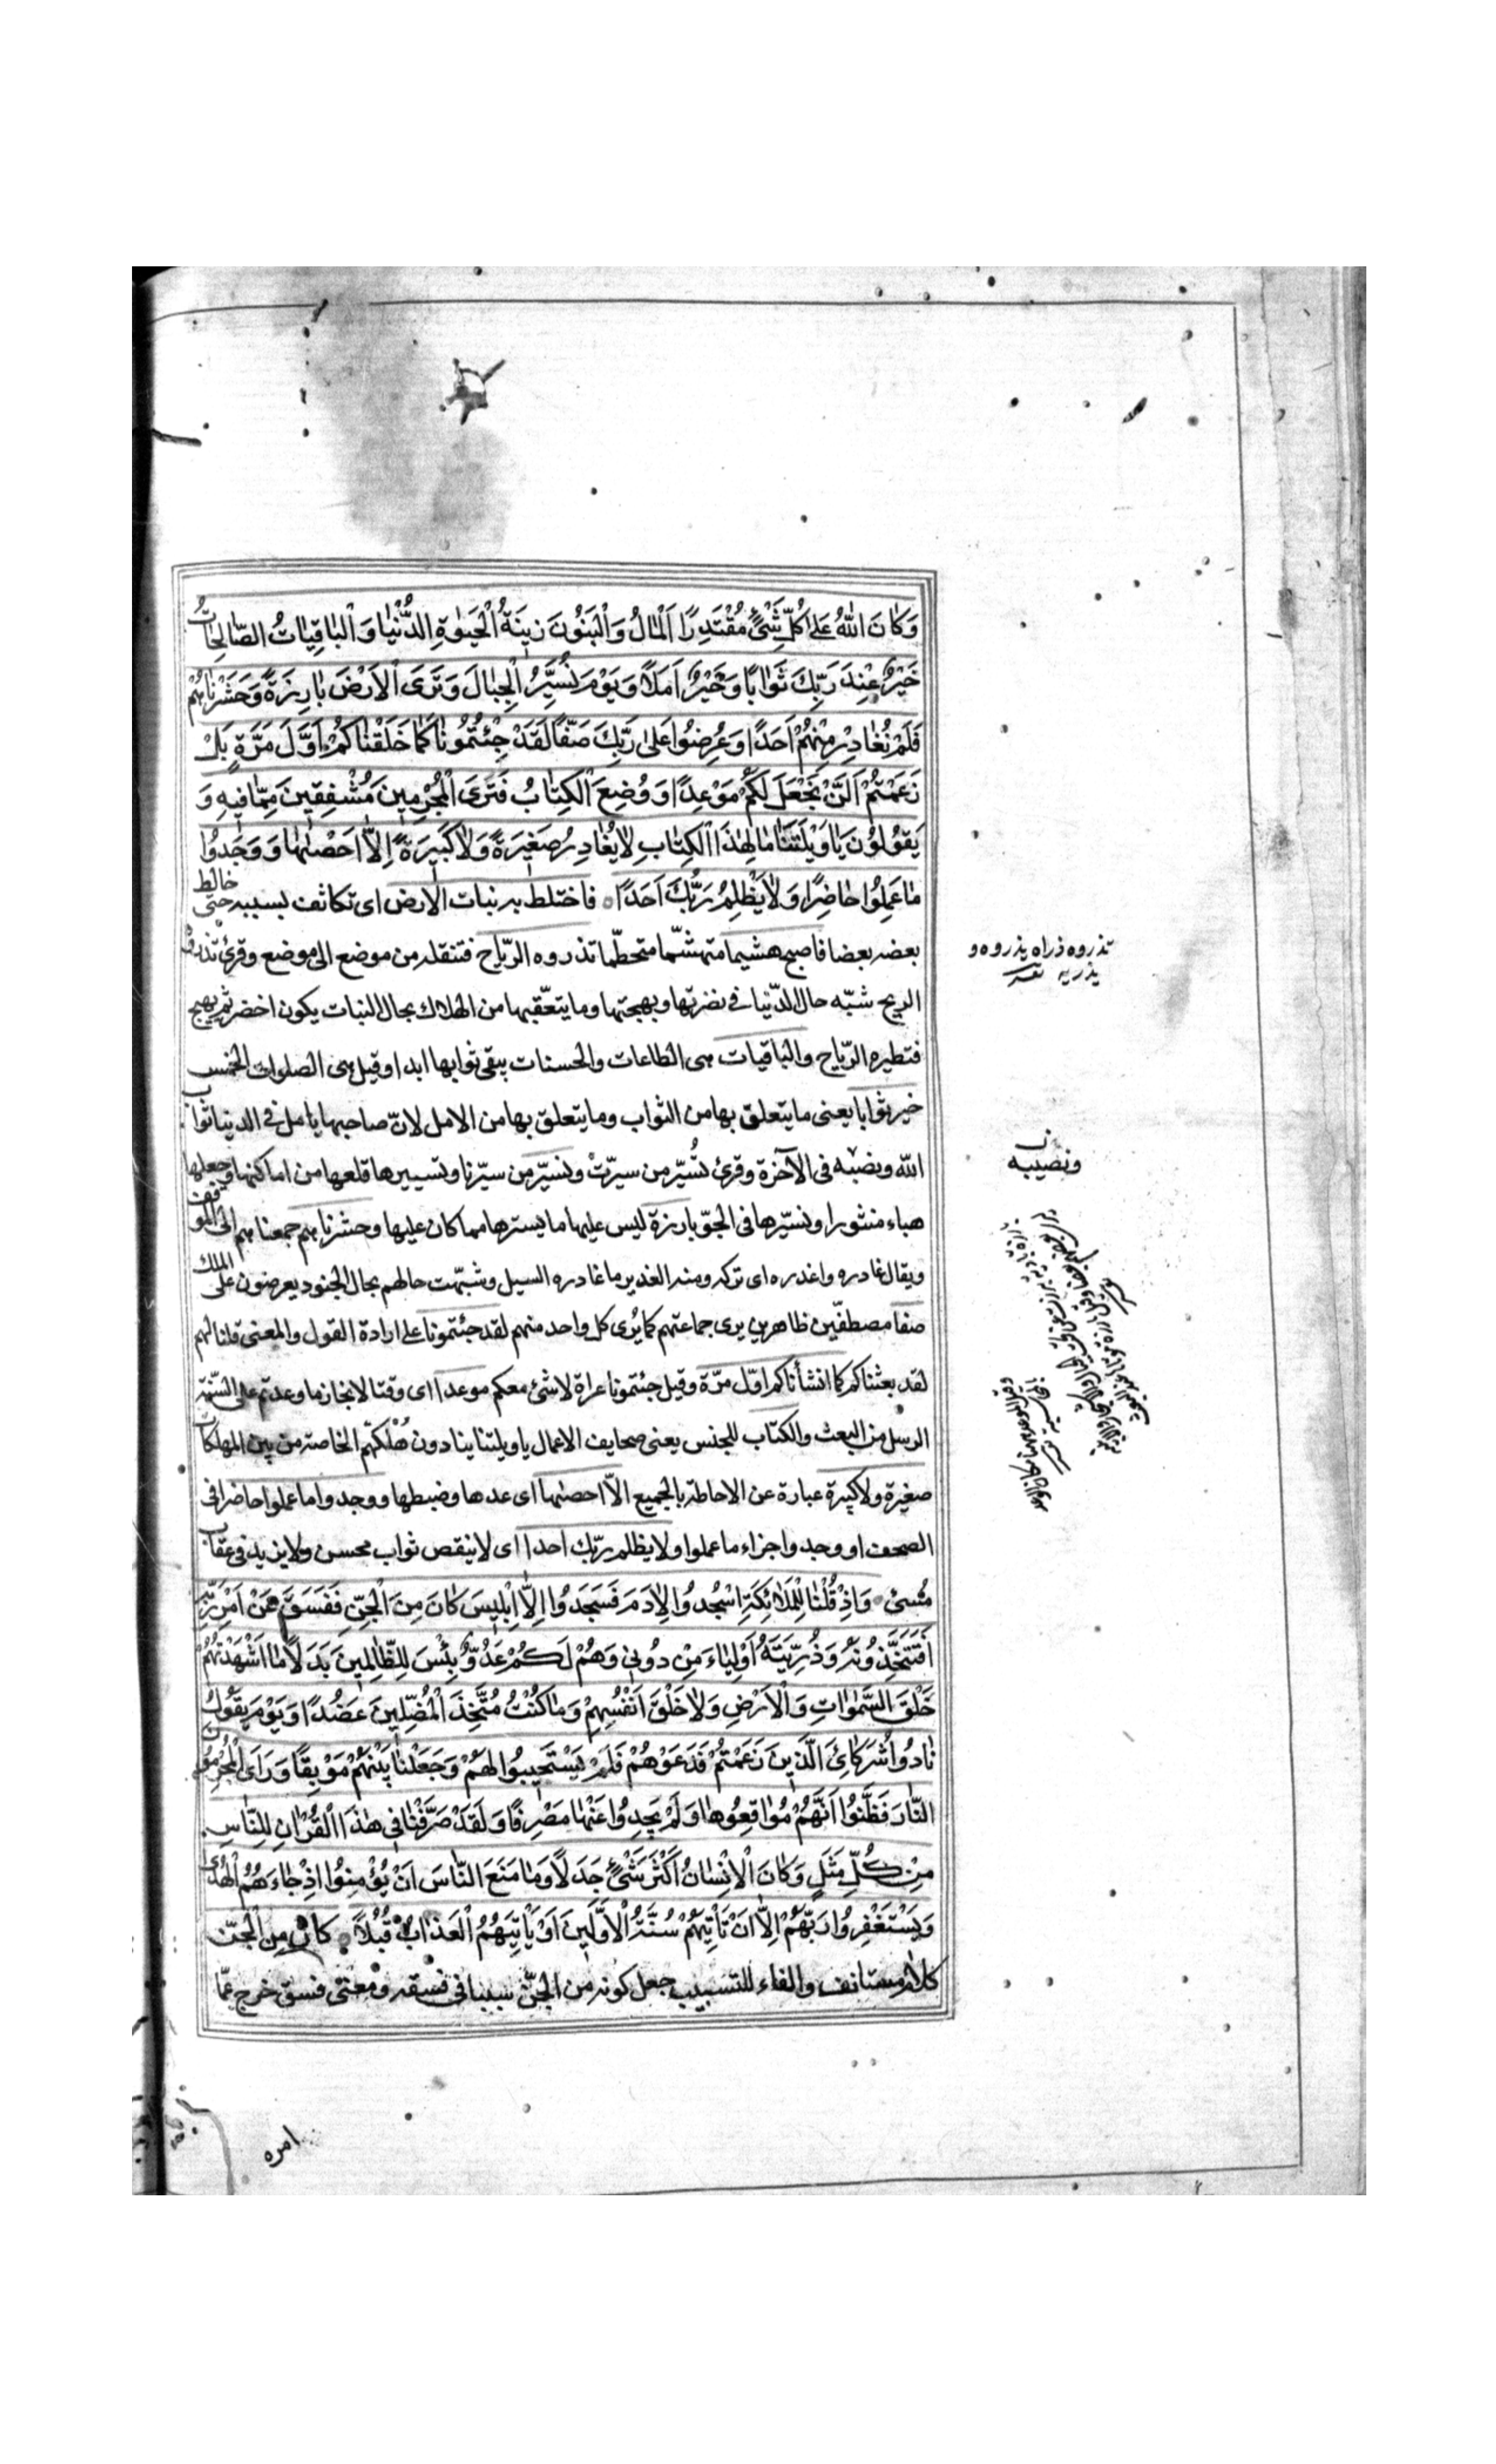 وَكَانَ اللّٰهُ عَلٰى كُلِّ شَيْئٍ مُقْتَدِرًا اَلْمَالُ وَالْبَنُوْنَ زِينَةُ الْحَيٰوةِ الدُّنْيٰا وَالْبٰاقِيٰاتُ الصّٰالِحٰاتُ
خَيْرٌ عِنْدَ رَبِّكَ ثَوٰابًا وَخَيْرٌ اَمَلًا وَيَوْمَ نُسَيِّرُ الْجِبٰالَ وَتَرَى الْاَرْضَ بٰارِزَةً وَحَشَرْنٰاهُمْ
فَلَمْ نُغٰادِرْ مِنْهُمْ اَحَدًا وَعُرِضُوا عَلٰى رَبِّكَ صَفًّا لَقَدْ جِئْتُمُونٰا كَمٰا خَلَقْنٰاكُمْ اَوَّلَ مَرَّةٍ بَلْ
زَعَمْتُمْ اَلَّنْ نَجْعَلَ لَكُمْ مَوْعِدًا وَوُضِعَ الْكِتٰابُ فَتَرَى الْمُجْرِمِينَ مُشْفِقِينَ مِمّٰا فِيهِ وَ
يَقُولُونَ يٰا وَيْلَتَنٰا مٰا لِهٰذَا الْكِتٰابِ لٰا يُغٰادِرُ صَغِيرَةً وَلٰا كَبِيرَةً اِلّٰا اَحْصٰيهٰا وَوَجَدُوا
مٰا عَمِلُوا حٰاضِرًا وَلٰا يَظْلِمُ رَبُّكَ اَحَدًا فاختلط به نبات الارض اى تكاثف بسببه حتى خالط
بعضه بعضا فاصبح هشيما متهشّما متحطّما تذروه الرّياح فتنقله من موضع الى موضع وقرئ تذروه
الريح شبّه حال الدّنيا فى نضرتها وبهجتها وما يتعّقبها من الهلاك بحال النبات يكون اخضر ثم يهيج
فتطيره الرّياح والباقيات هى الطاعات والحسنات يبقى ثوابها ابدا وقيل هى الصلوات الخمس
خير ثوابا يعنى ما يتعلق بها من الثواب وما يتعلق بها من الامل لانّ صاحبها يامل فى الدنيا ثواب
اللّه ونصيبه فى الآخرة وقرئ تُسَيَّر من سيرّتْ ونسيّر من سيّرنا وتسييرها قلعها من اماكنها وجعلها
هباء منثورا ونسيّرها فى الجوّ بارزة ليس عليها ما يسترها مما كان عليها وحشرناهم جمعناهم الى الموقف
ويقال غادره واغدره اى تركه ومنه الغدير ما غادره السيل وشبّهت حالهم بحال الجنود يعرضون على الملك
صفا مصطفّين ظاهرين يرى جماعتهم كما يُرى كل واحد منهم لقد جئتمونا على ارادة القول والمعنى قلنا لهم
لقد بعثناكم كما انشأناكم اوّل مرّة وقيل جئتمونا عراة لا شئ معكم موعدا اى وقتا لانجاز ما وعدتم على السّنة
الرسل من البعث والكتاب للجنس يعنى صحايف الاعمال يا ويلتنا ينادون هُلْكتهم الخاصة من بين المهلكات
صغيرة ولا كبيرة عبارة عن الاحاطة بالجميع الاّ احصٰيها اى عدها وضبطها ووجدوا ما عملوا حاضرا فى
الصحف او وجدوا جزاء ما عملوا ولا يظلم ربّك احدا اى لا ينقص ثواب محسن ولا يزيد فى عقاب
مُسئ وَاِذْ قُلْنٰا لِلْمَلٰائِكَةِ اسْجُدُوا لِاٰدَمَ فَسَجَدُوا اِلّٰا اِبْلِيسَ كٰانَ مِنَ الْجِنِّ فَفَسَقَ عَنْ اَمْرِ رَبِّهِ
اَفَتَتَّخِذُونَهُ وَذُرِّيَّتَهُ اَوْلِيٰاءَ مِنْ دُونِى وَهُمْ لَكُمْ عَدُوٌّ بِئْسَ لِلظّٰالِمِينَ بَدَلًا مٰا اَشْهَدْتُهُمْ
خَلْقَ السَّمٰوٰاتِ وَالْاَرْضِ وَلٰا خَلْقَ اَنْفُسِهِمْ وَمٰا كُنْتُ مُتَّخِذَ الْمُضِلِّينَ عَضُدًا وَيَوْمَ يَقُولُ
نٰادُوا شُرَكٰائِىَ الَّذِينَ زَعَمْتُمْ فَدَعَوْهُمْ فَلَمْ يَسْتَجِيبُوا لَهُمْ وَجَعَلْنٰا بَيْنَهُمْ مَوْبِقًا وَرَاَى الْمُجْرِمُونَ
النّٰارَ فَظَنُّوا اَنَّهُمْ مُوٰاقِعُوهٰا وَلَمْ يَجِدُوا عَنْهٰا مَصْرِفًا وَلَقَدْ صَرَّفْنٰا فِى هٰذَا الْقُرْاٰنِ لِلنّٰاسِ
مِنْ كُلِّ مَثَلٍ وَكٰانَ الْاِنْسٰانُ اَكْثَرَ شَيْئٍ جَدَلًا وَمٰا مَنَعَ النّٰاسَ اَنْ يُؤْمِنُوا اِذْ جٰاءَهُمُ الْهُدٰى
وَيَسْتَغْفِرُوا رَبَّهُمْ اِلّٰا اَنْ تَأْتِيَهُمْ سُنَّةُ الْاَوَّلِينَ اَوْ يَأْتِيَهُمُ الْعَذٰابُ قُبُلًا كان من الجنّ
كلام مستانف والفاء للتسبيب جعل كونه من الجنّ سببا فى فسقه ومعنى فسق خرج عمّا
تذروه ذراه يذروه و
يذريه
ونصيبه
امره